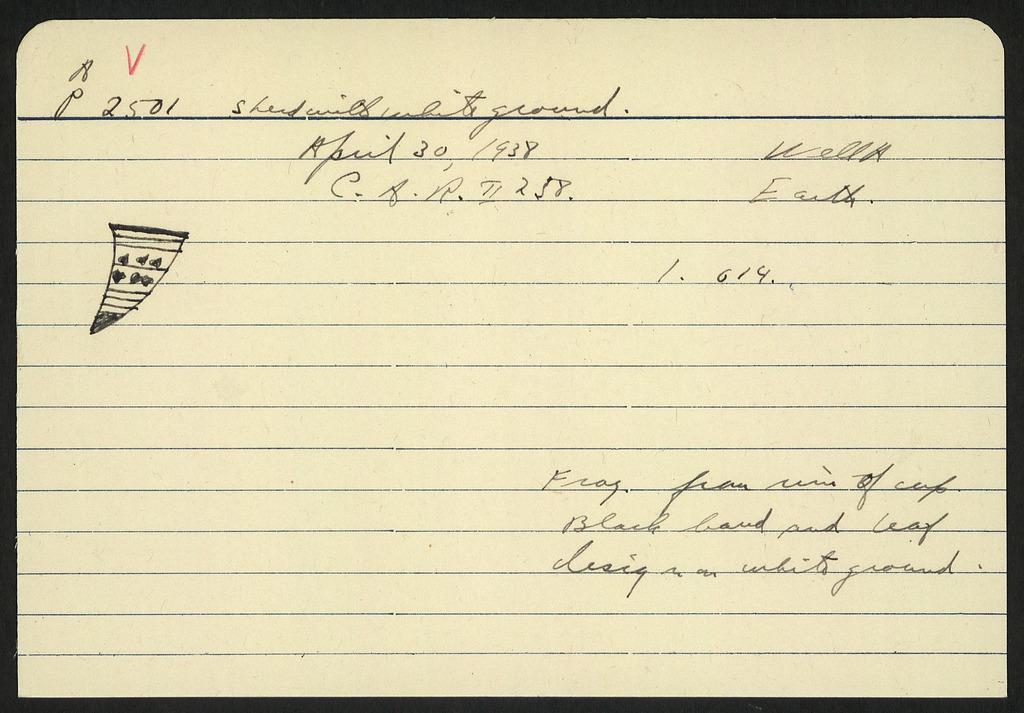 A V
P 2501 sherd with white ground.
April 30, 1938 Well A
C. A. R. II 258. Earth.
l. 614.
Frag. from rim of cup
Black band and leaf
design on white ground.